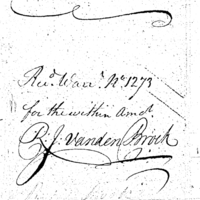 Recd. Warr. No. 1273
for the within Amot
P. J. Vanden Broek